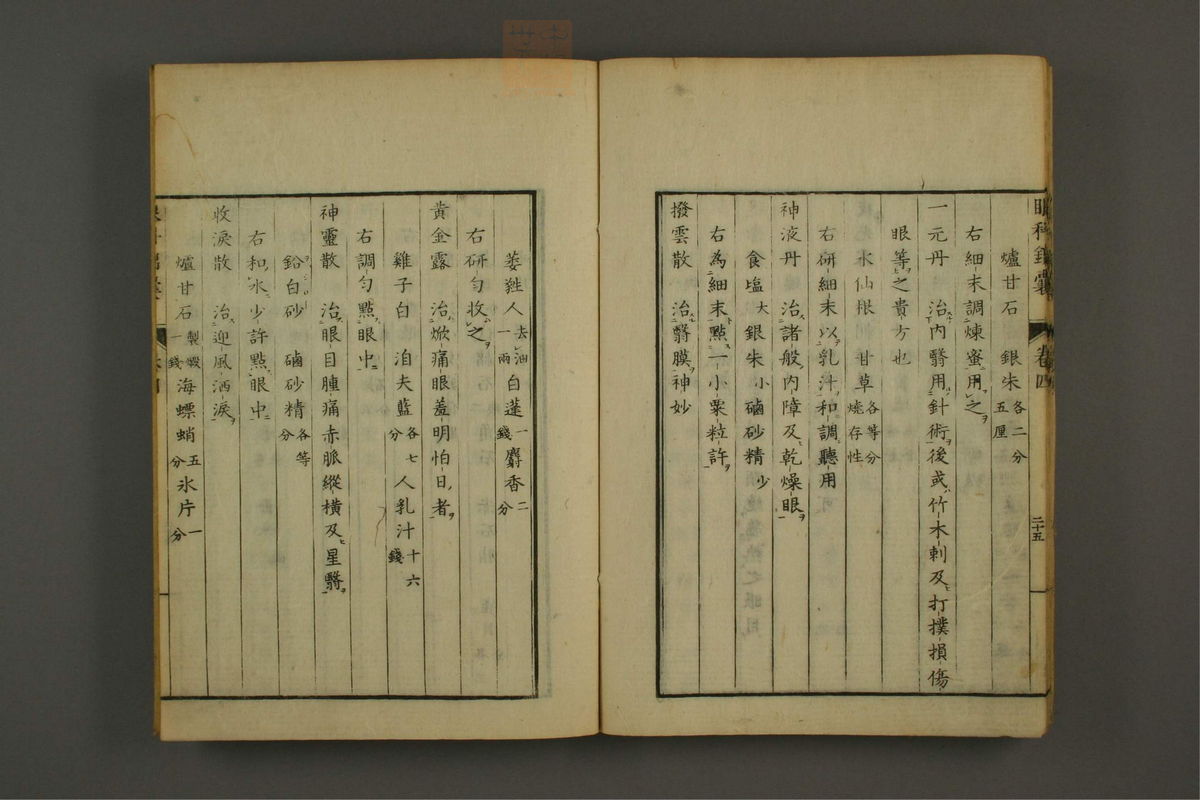 眼科錦囊 卷四 二十五
爐甘石 銀朱各二分五厘
右細末調煉蜜用之
一元丹 治內翳用針術後或竹木刺及打撲損傷
眼等之貴方也
水仙根 甘草各等分燒存性
右研細末以乳汁和調聽用
神液丹 治諸般內障及乾燥眼
食塩大 銀朱小 磠砂精少
右為細末點一小粟粒許
撥雲散 治翳膜神妙
蕤𦫶人去油一兩 白蓬一錢 麝香二分
右研勻收之
黃金露 治焮痛眼羞明怕日者
雞子白 泊夫藍各七分 人乳汁十六錢
右調勻點眼中
神靈散 治眼目腫痛赤脈縱橫及星翳
鉛白砂 磠砂精各等分
右和水少許點眼中
收淚散 治迎風洒淚
爐甘石製煆一錢 海螵蛸五分 氷片一分